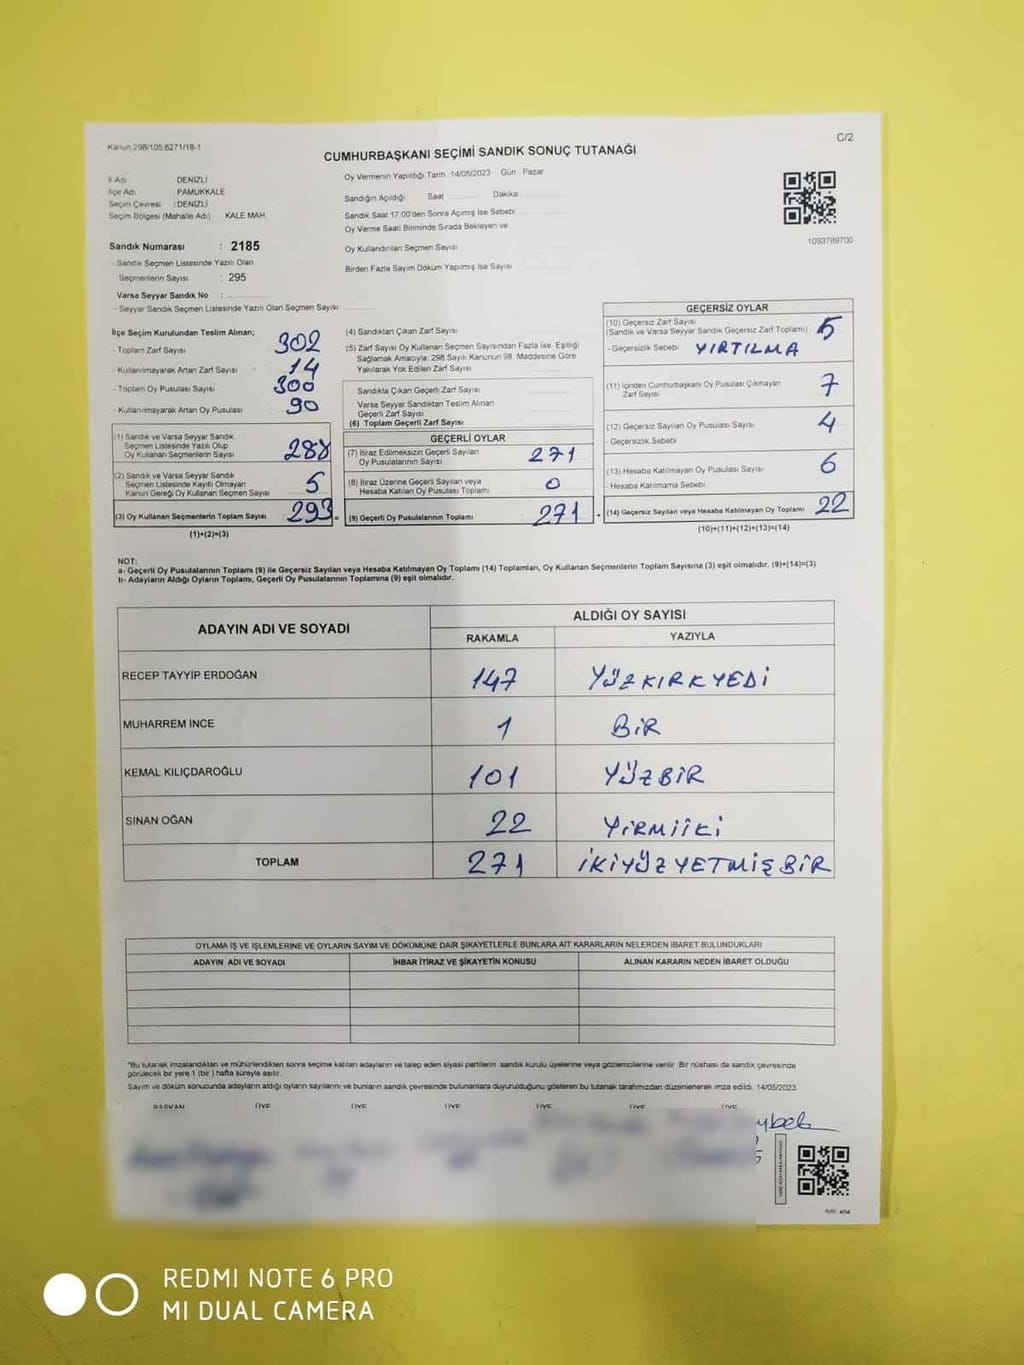 Kanun 298/105,6271/18-1
C/2
CUMHURBAŞKANI SEÇİMİ SANDIK SONUÇ TUTANAĞI
İl Adı : DENİZLİ
İlçe Adı : PAMUKKALE
Seçim Çevresi : DENİZLİ
Seçim Bölgesi (Mahalle Adı) KALE MAH.
Sandık Numarası : 2185
- Sandık Seçmen Listesinde Yazılı Olan
Seçmenlerin Sayısı : 295
Varsa Seyyar Sandık No :
- Seyyar Sandık Seçmen Listesinde Yazılı Olan Seçmen Sayısı :
Oy Vermenin Yapıldığı Tarih 14/05/2023 Gün Pazar
Sandığın Açıldığı Saat Dakika
Sandık Saat 17:00'den Sonra Açımış İse Sebebi
Oy Verme Saati Bitiminde Sırada Bekleyen ve
Oy Kullandırılan Seçmen Sayısı
Birden Fazla Sayım Döküm Yapılmış İse Sayısı
1093789700
İlçe Seçim Kurulundan Teslim Alınan;
- Toplam Zarf Sayısı 302
- Kullanılmayarak Artan Zarf Sayısı 14
- Toplam Oy Pusulası Sayısı 300
- Kullanılmayarak Artan Oy Pusulası 90
(1) Sandık ve Varsa Seyyar Sandık
Seçmen Listesinde Yazılı Olup
Oy Kullanan Seçmenlerin Sayısı 288
(2) Sandık ve Varsa Seyyar Sandık
Seçmen Listesinde Kayıtlı Olmayan
Kanun Gereği Oy Kullanan Seçmen Sayısı 5
(3) Oy Kullanan Seçmenlerin Toplam Sayısı 293
(1)+(2)=(3)
(4) Sandıktan Çıkan Zarf Sayısı
(5) Zarf Sayısı Oy Kullanan Seçmen Sayısından Fazla İse, Eşitliği
Sağlamak Amacıyla; 298 Sayılı Kanunun 98. Maddesine Göre
Yakılarak Yok Edilen Zarf Sayısı
Sandıkta Çıkan Geçerli Zarf Sayısı
Varsa Seyyar Sandıktan Teslim Alınan
Geçerli Zarf Sayısı
(6) Toplam Geçerli Zarf Sayısı
GEÇERLİ OYLAR
(7) İtiraz Edilmeksizin Geçerli Sayılan
Oy Pusulalarının Sayısı 271
(8) İtiraz Üzerine Geçerli Sayılan veya
Hesaba Katılan Oy Pusulası Toplamı 0
= (9) Geçerli Oy Pusulalarının Toplamı 271 +
GEÇERSİZ OYLAR
(10) Geçersiz Zarf Sayısı
(Sandık ve Varsa Seyyar Sandık Geçersiz Zarf Toplamı) 5
- Geçersizlik Sebebi YIRTILMA
(11) İçinden Cumhurbaşkanı Oy Pusulası Çıkmayan
Zarf Sayısı 7
(12) Geçersiz Sayılan Oy Pusulası Sayısı 4
- Geçersizlik Sebebi
(13) Hesaba Katılmayan Oy Pusulası Sayısı 6
- Hesaba Katılmama Sebebi
(14) Geçersiz Sayılan veya Hesaba Katılmayan Oy Toplamı 22
(10)+(11)+(12)+(13)=(14)
NOT:
a- Geçerli Oy Pusulalarının Toplamı (9) ile Geçersiz Sayılan veya Hesaba Katılmayan Oy Toplamı (14) Toplamları, Oy Kullanan Seçmenlerin Toplam Sayısına (3) eşit olmalıdır. (9)+(14)=(3)
b- Adayların Aldığı Oyların Toplamı, Geçerli Oy Pusulalarının Toplamına (9) eşit olmalıdır.
ADAYIN ADI VE SOYADI ALDIĞI OY SAYISI
RAKAMLA YAZIYLA
RECEP TAYYİP ERDOĞAN 147 YÜZKIRKYEDİ
MUHARREM İNCE 1 BİR
KEMAL KILIÇDAROĞLU 101 YÜZBİR
SİNAN OĞAN 22 YİRMİİKİ
TOPLAM 271 İKİYÜZYETMİŞBİR
OYLAMA İŞ VE İŞLEMLERİNE VE OYLARIN SAYIM VE DÖKÜMÜNE DAİR ŞİKAYETLERLE BUNLARA AİT KARARLARIN NELERDEN İBARET BULUNDUKLARI
ADAYIN ADI VE SOYADI İHBAR İTİRAZ VE ŞİKAYETİN KONUSU ALINAN KARARIN NEDEN İBARET OLDUĞU
*Bu tutanak imzalandıktan ve mühürlendikten sonra seçime katılan adayların ve talep eden siyasi partilerin sandık kurulu üyelerine veya gözlemcilerine verilir. Bir nüshası da sandık çevresinde
görülecek bir yere 1 (bir) hafta süreyle asılır.
Sayım ve döküm sonucunda adayların aldığı oyların sayılarını ve bunların sandık çevresinde bulunanlara duyurulduğunu gösteren bu tutanak tarafımızdan düzenlenerek imza edildi. 14/05/2023
BAŞKAN ÜYE ÜYE ÜYE ÜYE ÜYE ÜYE
REDMI NOTE 6 PRO
MI DUAL CAMERA